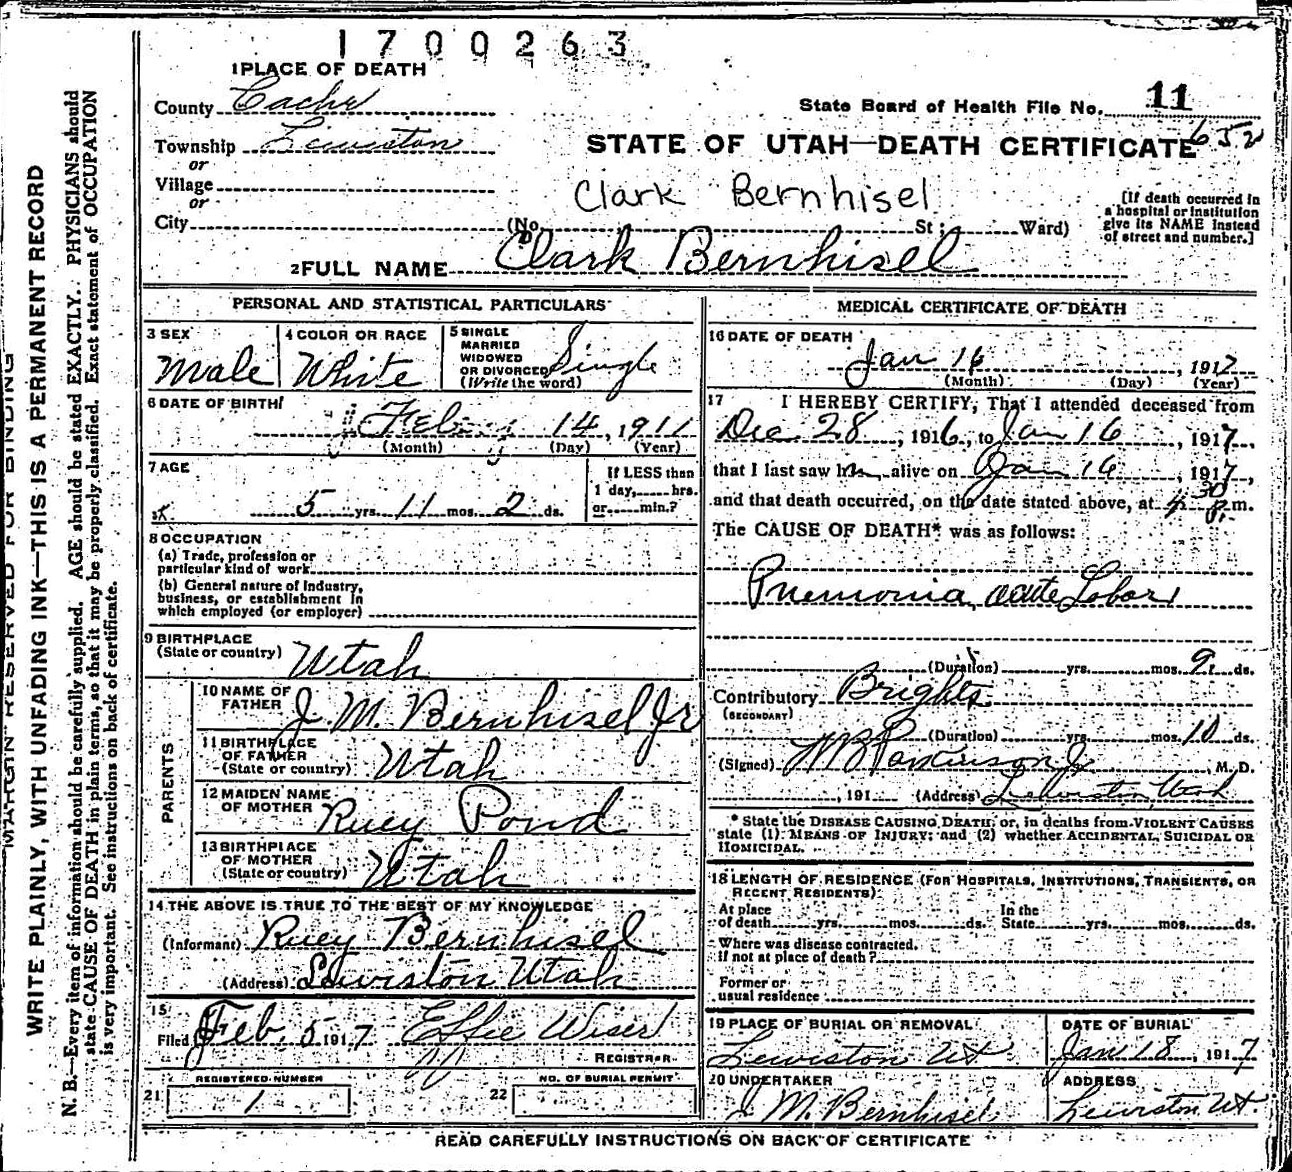 1700263
1 PLACE OF DEATH
County Cache
State Board of Health File No. 11
Township Lewiston
or
STATE OF UTAH—DEATH CERTIFICATE 652
Village
or
Clark Bernhisel
City (No. St; Ward)
[If death occurred in
a hospital or institution
give its NAME instead
of street and number.]
2 FULL NAME Clark Bernhisel
PERSONAL AND STATISTICAL PARTICULARS
3 SEX
Male
4 COLOR OR RACE
White
5 SINGLE
MARRIED
WIDOWED
OR DIVORCED
(Write the word)
Single
6 DATE OF BIRTH
Feb 14, 1911
(Month) (Day) (Year)
7 AGE
5 yrs. 11 mos. 2 ds.
If LESS than
1 day, hrs.
or min.?
8 OCCUPATION
(a) Trade, profession or
particular kind of work
(b) General nature of Industry,
business, or establishment in
which employed (or employer)
9 BIRTHPLACE
(State or country) Utah
PARENTS
10 NAME OF
FATHER J. M. Bernhisel Jr
11 BIRTHPLACE
OF FATHER
(State or country) Utah
12 MAIDEN NAME
OF MOTHER Ruey Pond
13 BIRTHPLACE
OF MOTHER
(State or country) Utah
14 THE ABOVE IS TRUE TO THE BEST OF MY KNOWLEDGE
(Informant) Ruey Bernhisel
(Address) Lewiston Utah
15
Filed Feb. 5 1917 Effie Wiser
REGISTRAR
REGISTERED NUMBER
21 1
NO. OF BURIAL PERMIT
22
MEDICAL CERTIFICATE OF DEATH
16 DATE OF DEATH
Jan 16, 1917
(Month) (Day) (Year)
17 I HEREBY CERTIFY, That I attended deceased from
Dec. 28, 1916, to Jan 16, 1917,
that I last saw him alive on Jan 16, 1917,
and that death occurred, on the date stated above, at 4 30 p.m.
The CAUSE OF DEATH* was as follows:
Pnemonia, acute Lobar
(Duration) yrs. mos. 9 ds.
Contributory Brights
(SECONDARY)
(Duration) yrs. mos. 10 ds.
(Signed) W B Parkinson Jr, M. D.
, 191 (Address) Lewiston, Utah
* State the DISEASE CAUSING DEATH, or, in deaths from VIOLENT CAUSES
state (1) MEANS OF INJURY; and (2) whether ACCIDENTAL, SUICIDAL OR
HOMICIDAL.
18 LENGTH OF RESIDENCE (FOR HOSPITALS, INSTITUTIONS, TRANSIENTS, OR
RECENT RESIDENTS)
At place In the
of death yrs. mos. ds. State yrs. mos. ds.
Where was disease contracted,
if not at place of death?
Former or
usual residence
19 PLACE OF BURIAL OR REMOVAL
Lewiston Ut.
DATE OF BURIAL
Jan 18, 1917
20 UNDERTAKER
J M. Bernhisel
ADDRESS
Lewiston, Ut.
READ CAREFULLY INSTRUCTIONS ON BACK OF CERTIFICATE
MARGIN RESERVED FOR BINDING
WRITE PLAINLY, WITH UNFADING INK—THIS IS A PERMANENT RECORD
N. B.—Every item of information should be carefully supplied. AGE should be stated EXACTLY. PHYSICIANS should
state CAUSE OF DEATH in plain terms, so that it may be properly classified. Exact statement of OCCUPATION
is very important. See instructions on back of certificate.